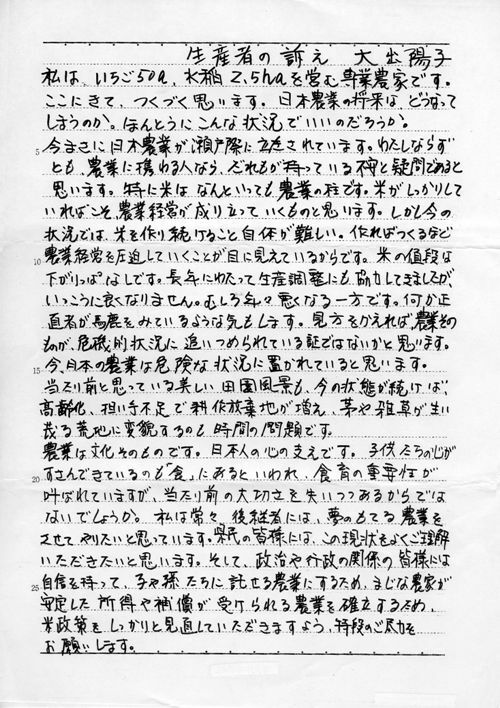 生産者の訴え 大出陽子
私は、いちご50a、水稲2.5haを営む専業農家です。
ここにきて、つくづく思います。日本農業の将来は、どうなって
しまうのか。ほんとうにこんな状況でいいのだろうか。
5 今まさに日本農業が瀬戸際に立たされています。わたしならず
とも、農業に携わる人なら、だれもが持っている不安と疑問であると
思います。特に米はなんといっても農業の柱です。米がしっかりして
いればこそ、農業経営が成り立っていくものと思います。しかし今の
状況では、米を作り続けること自体が難しい。作ればつくるなど
10 農業経営を圧迫していくことが目に見えているからです。米の値段は
下がりっぱなしです。長年にわたって生産調整にも協力してきましたが、
いっこうに良くなりません。むしろ年々悪くなる一方です。何か正
直者が馬鹿をみているような気もします。見方をかえれば農業その
ものが、危機的状況に追いつめられている証ではないかと思います。
15 今、日本の農業は危険な状況に置かれていると思います。
当たり前と思っている美しい田園風景も、今の状態が続けば、
高齢化、担い手不足で耕作放棄地が増え、茅や雑草が生い
茂る荒地に変貌するのも時間の問題です。
農業は文化そのものです。日本人の心の支えです。子供たちの心が
20 すさんできているのも「食」にあるといわれ、食育の重要性が
叫ばれていますが、当たり前の大切さを失いつつあるからでは
ないでしょうか。私は常々、後継者には、夢のもてる農業を
させてやりたいと思っています。県民の皆様には、この現状をよくご理解
いただきたいと思います。そして、政治や行政の関係の皆様には
25 自信を持って、子や孫たちに託せる農業にするため、まじな農家が
安定した所得や補償が受けられる農業を確立するため、
米政策をしっかりと見直していただきますよう、特段のご尽力を
お願いします。